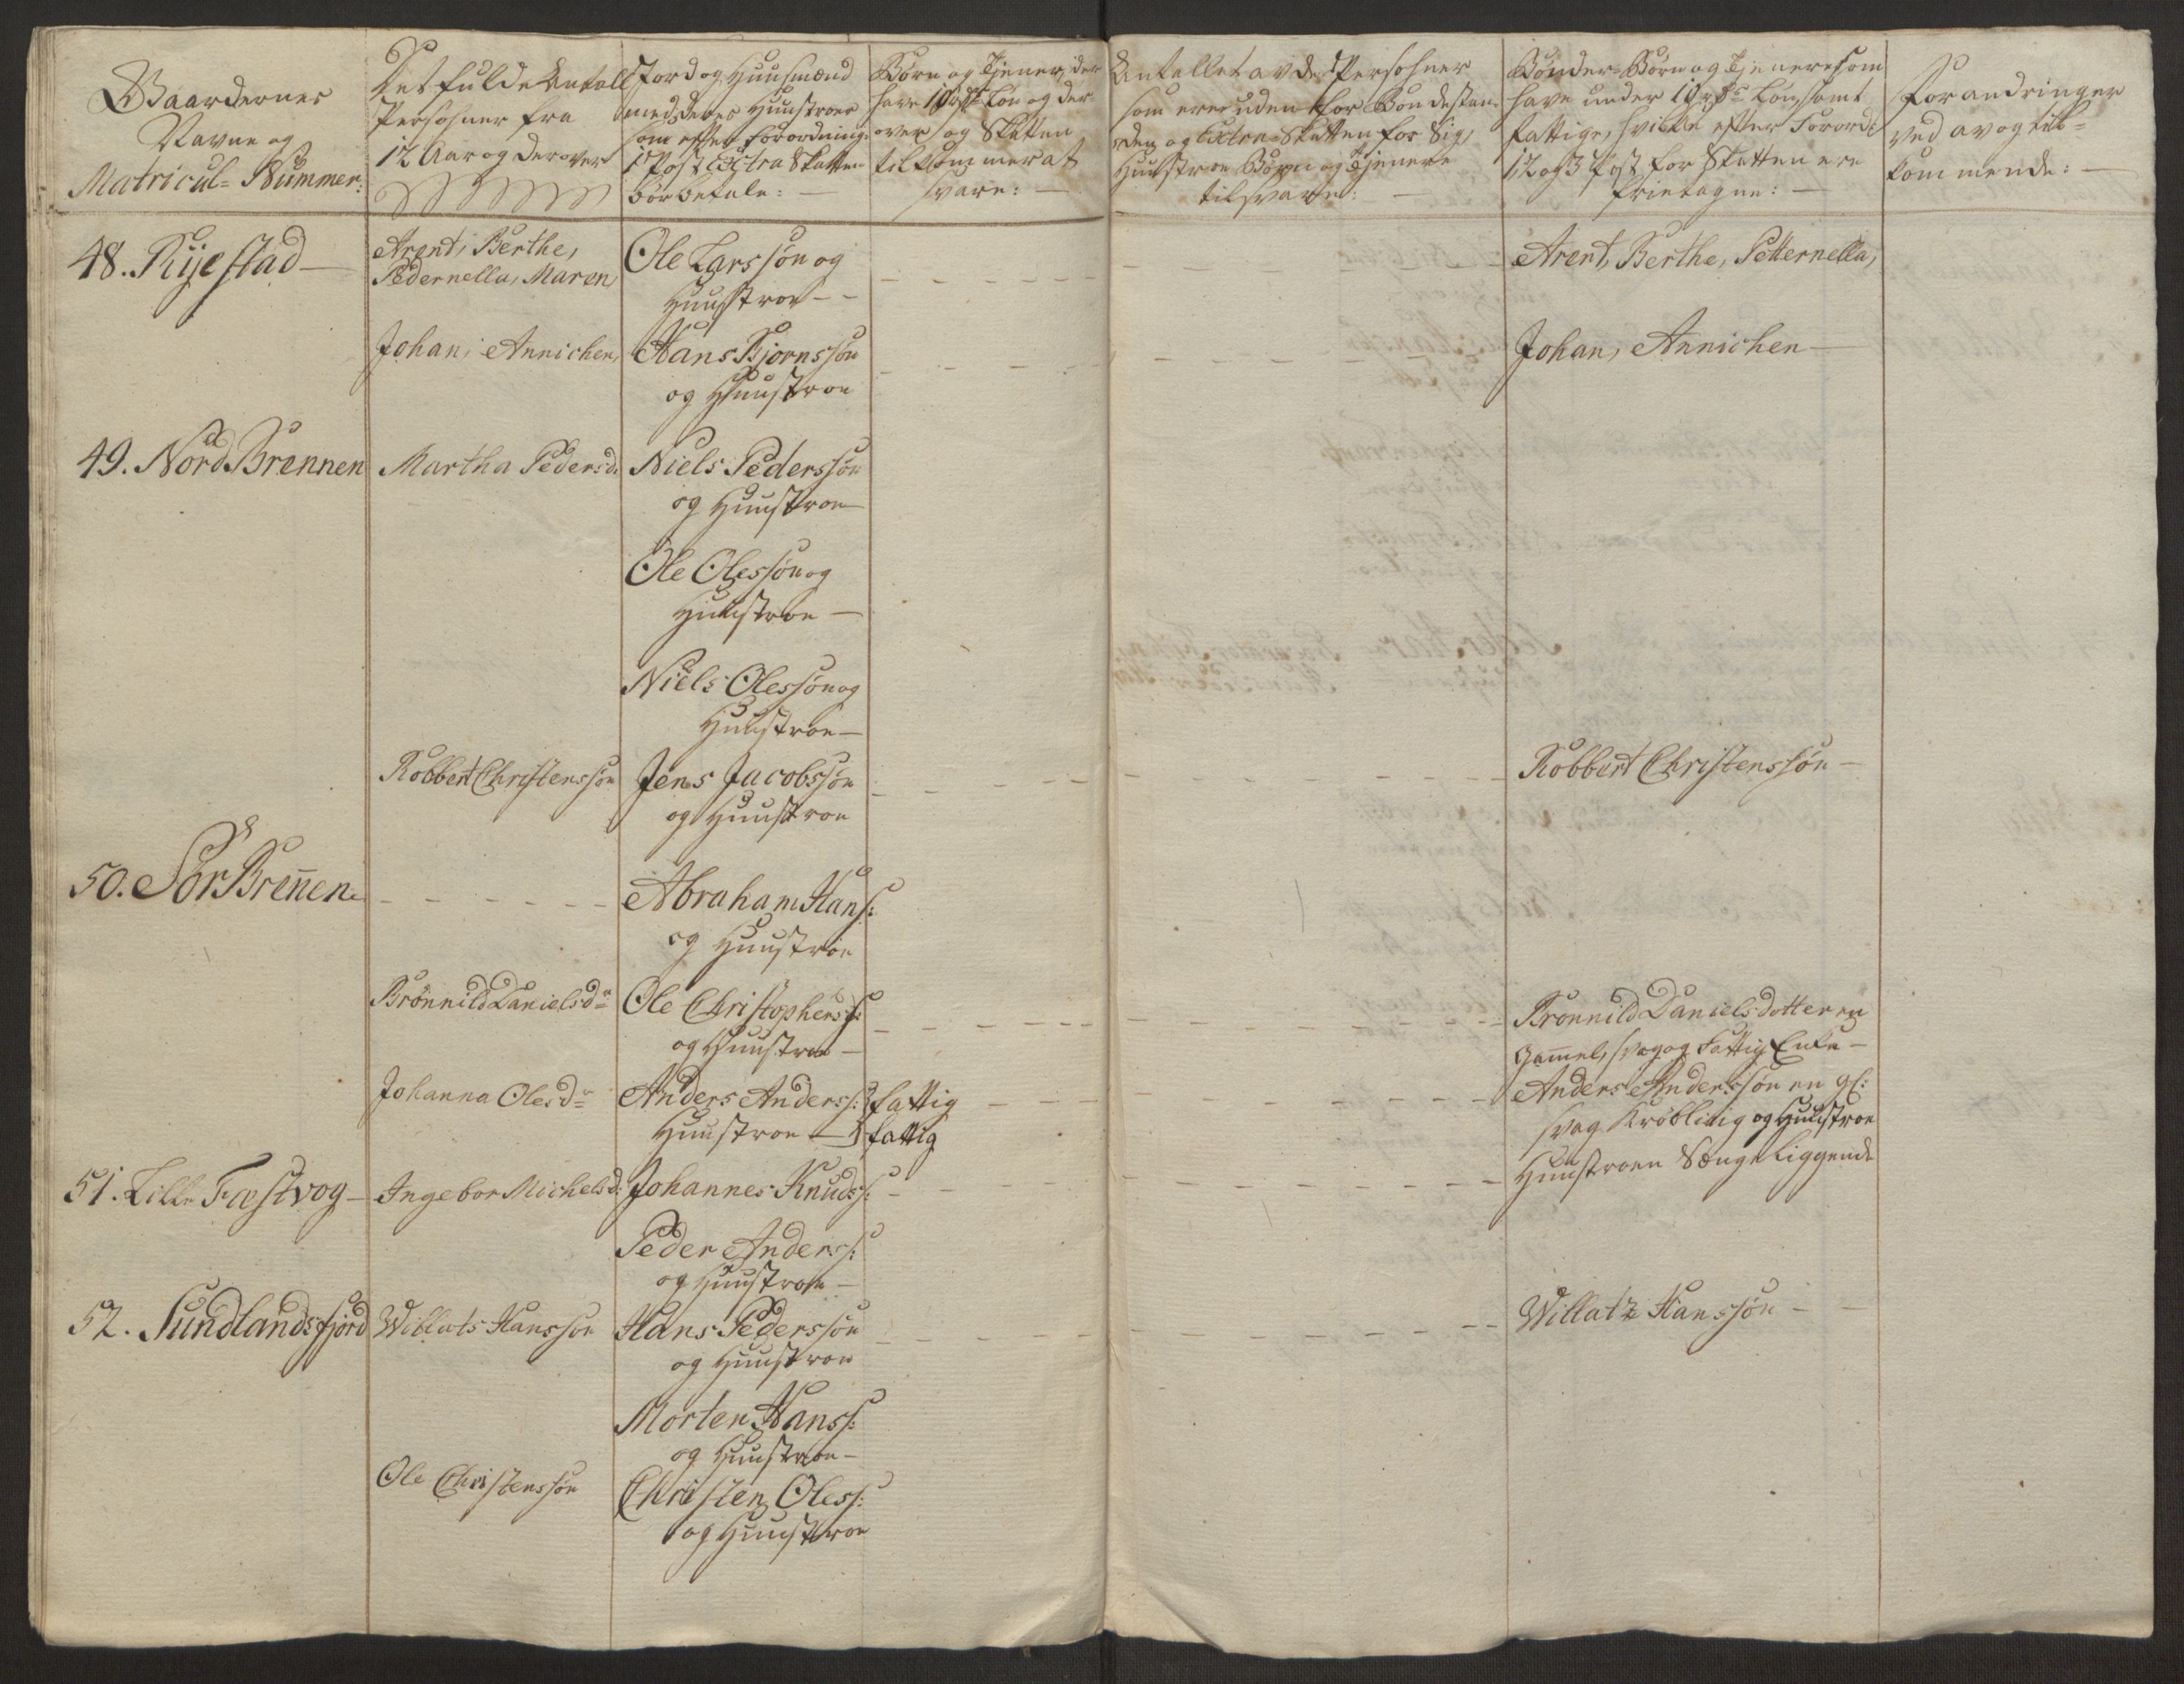 Gaardernes
Navne og
Matricul-Nummer:
Det fulde Antall
Persohner fra
12 Aar og derover
Jord og Huusmænd
med deres Huustroer
som efter Forordning:
1 Post Extra Skatten
bør betale: —
Børn og Tjener, der
have 10 rdr Løn og der
over og Skatten
tilkommer at
svare: —
Antallet av de Persohner
som ere uden for Bondestan-
den og Extra-Skatten for Sig,
Hustroe Børn og Tjenere
tilsvarer: —
Bønder-Børn og Tjenere som
have under 10 rdr Løn, samt
fattige, hvilke efter Forord:
1, 2 og 3 Post for Skatten ere
frietagne: —
Forandringer
ved av og til-
kommende: —
48. Rijestad —
Arent, Berthe,
Pedernella, Maren
Ole Larssøn og
Huustroe - -
Arent, Berthe, Petternella,
Johan, Annichen,
Hans Bjørnssøn
og Huustroe
Johan, Annichen —
49. Nord Brennen
Martha Pedersd:
Niels Pederssøn
og Huustroe —
Ole Olessøn og
Huustroe —
Niels Olessøn og
Huustroe —
Robbert Christenssøn
Jens Jacobssøn
og Huustroe
Robbert Christenssøn —
50. Sør Breñen
Abraham Hans:
og Huustroe
Brønnild Danielsdr
Ole Christophers:
og Huustroe —
Brønnild Danielsdotter en
gam̃el, svag og Fattig Enke —
Johanna Olesdr
Anders Anders: fattig
Huustroe — fattig
Anders Anderssøn en gl:
svag Krøbling og Huustroe
Huustroen Sængeliggende
51. Lille Fæstvog —
Ingebor Michelsd:
Johannes Knuds:
Peder Anders:
og Huustroe —
52. Sundlandsfjord
Willats Hanssøn
Hans Pederssøn
og Huustroe
Willatz Hanssøn —
Morten Hanss:
og Huustroe —
Ole Christenssøn
Christen Oless:
og Huustroe